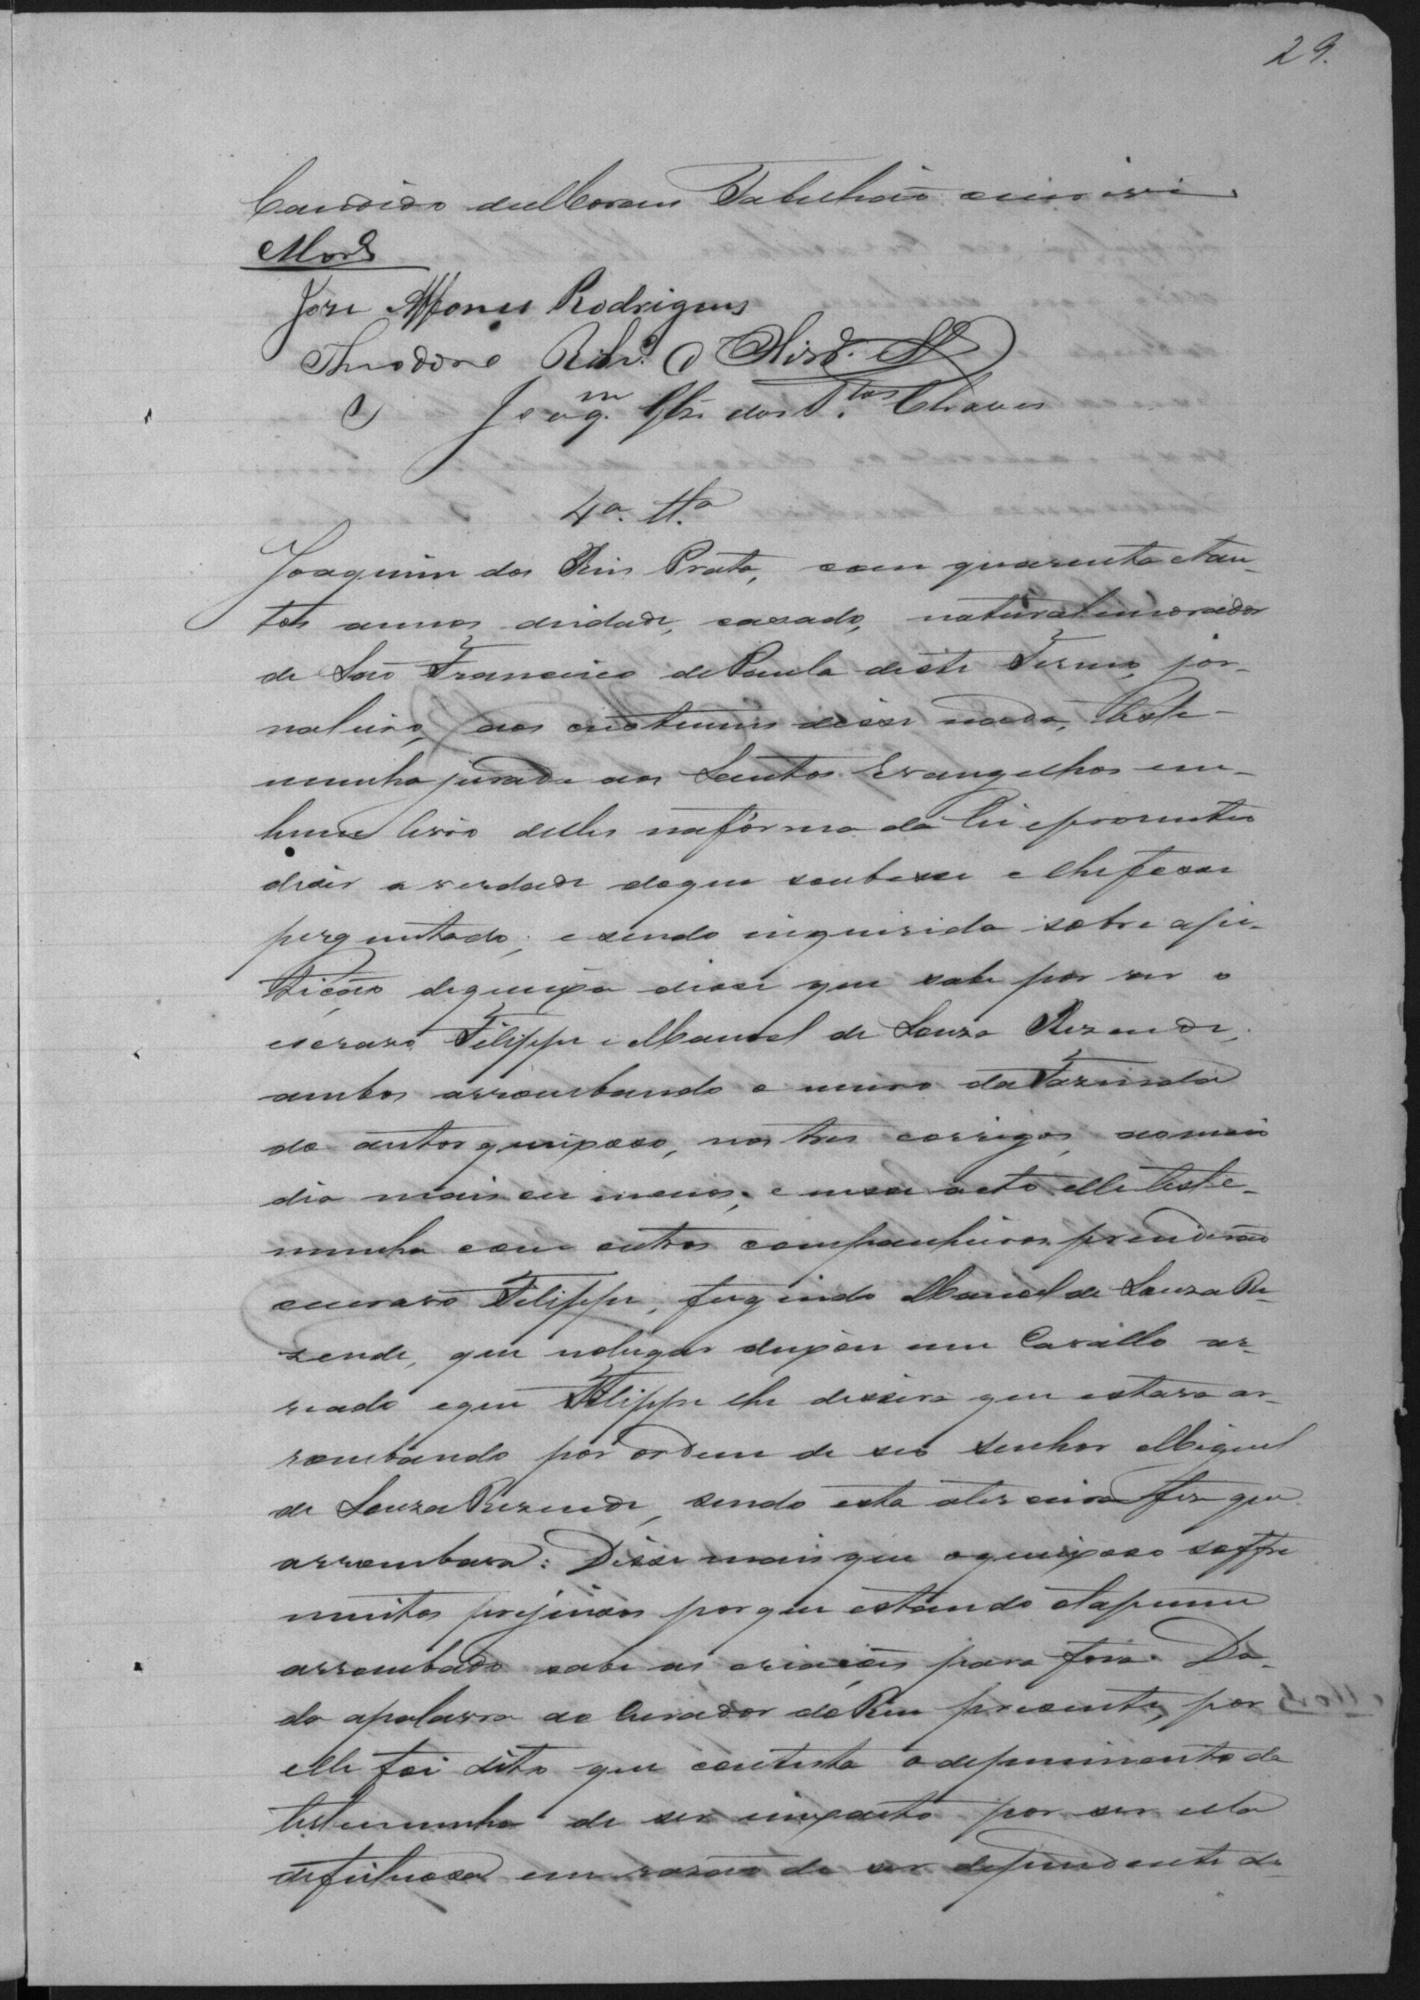 29.
Candido de Moraes Tabellião escrevi
Mor.es
José Affonso Rodrigues
Theodoro Ribr.o d Olivr.a
Joaq.m dos S.tos Chaves
4a. tt.a
Joaquim dos Reis Prata, com quarenta e tan-
tos annos deidade, casado, natural emorador
de São Francisco de Paula deste Termo, jor-
naleiro, aos costumes disse nada, teste-
munha jurada aos Santos Evangelhos em
hum livro delles nafórma da lei eprometteo
diser a verdade doque soubesse e lhe fosse
perguntado; e sendo inquirida sobre ape-
tição dequeixa disse que sabe por ver o
escravo Filippe e Manoel de Souza Rezende,
ambos arrombando o muro da Fazenda
do autor queixoso, nos tres corregos, ao meio
dia mais ou menos, e nesse acto elle teste-
munha com outros companheiros prenderão
oescravo Filippe, fugindo Manoel de Souza Re-
zende, que nolugar deixou um Cavallo ar-
reado eque Filippe lhe dissera que estava ar-
rombando por ordem de seo senhor Miguel
de Souza Rezende, sendo esta aterceira vez que
arrombava: Disse mais que oqueixoso soffre
muitos prejuisos porque estando otapume
arrombado sahe as criações para fora. Da-
do apalavra ao Curador do Reu presente, por
elle foi dito que contesta o depoimento da
testemunha de ser inexacto por ser ella
defeituosa em rasão de ser dependente do